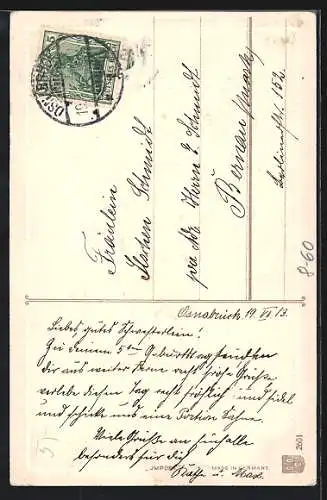 OSNABRÜCK
Fräulein
Schmidt
Herrn E. Schmidt
Bernau /Mark
Berlinerstr. 152
8-60
Osnabrück 19 VI 13.
Liebes gutes Schwesterlein!
Zu Deinem 5ten Geburtstag senden
Dir aus weiter Ferne recht frohe Grüße
verlebe diesen Tag recht fröhlich und fidel
und schicke uns eine Portion Sahne.
Viele Grüße an Euch alle
besonders für Dich
Käthe u. Max.
MADE IN GERMANY
2601